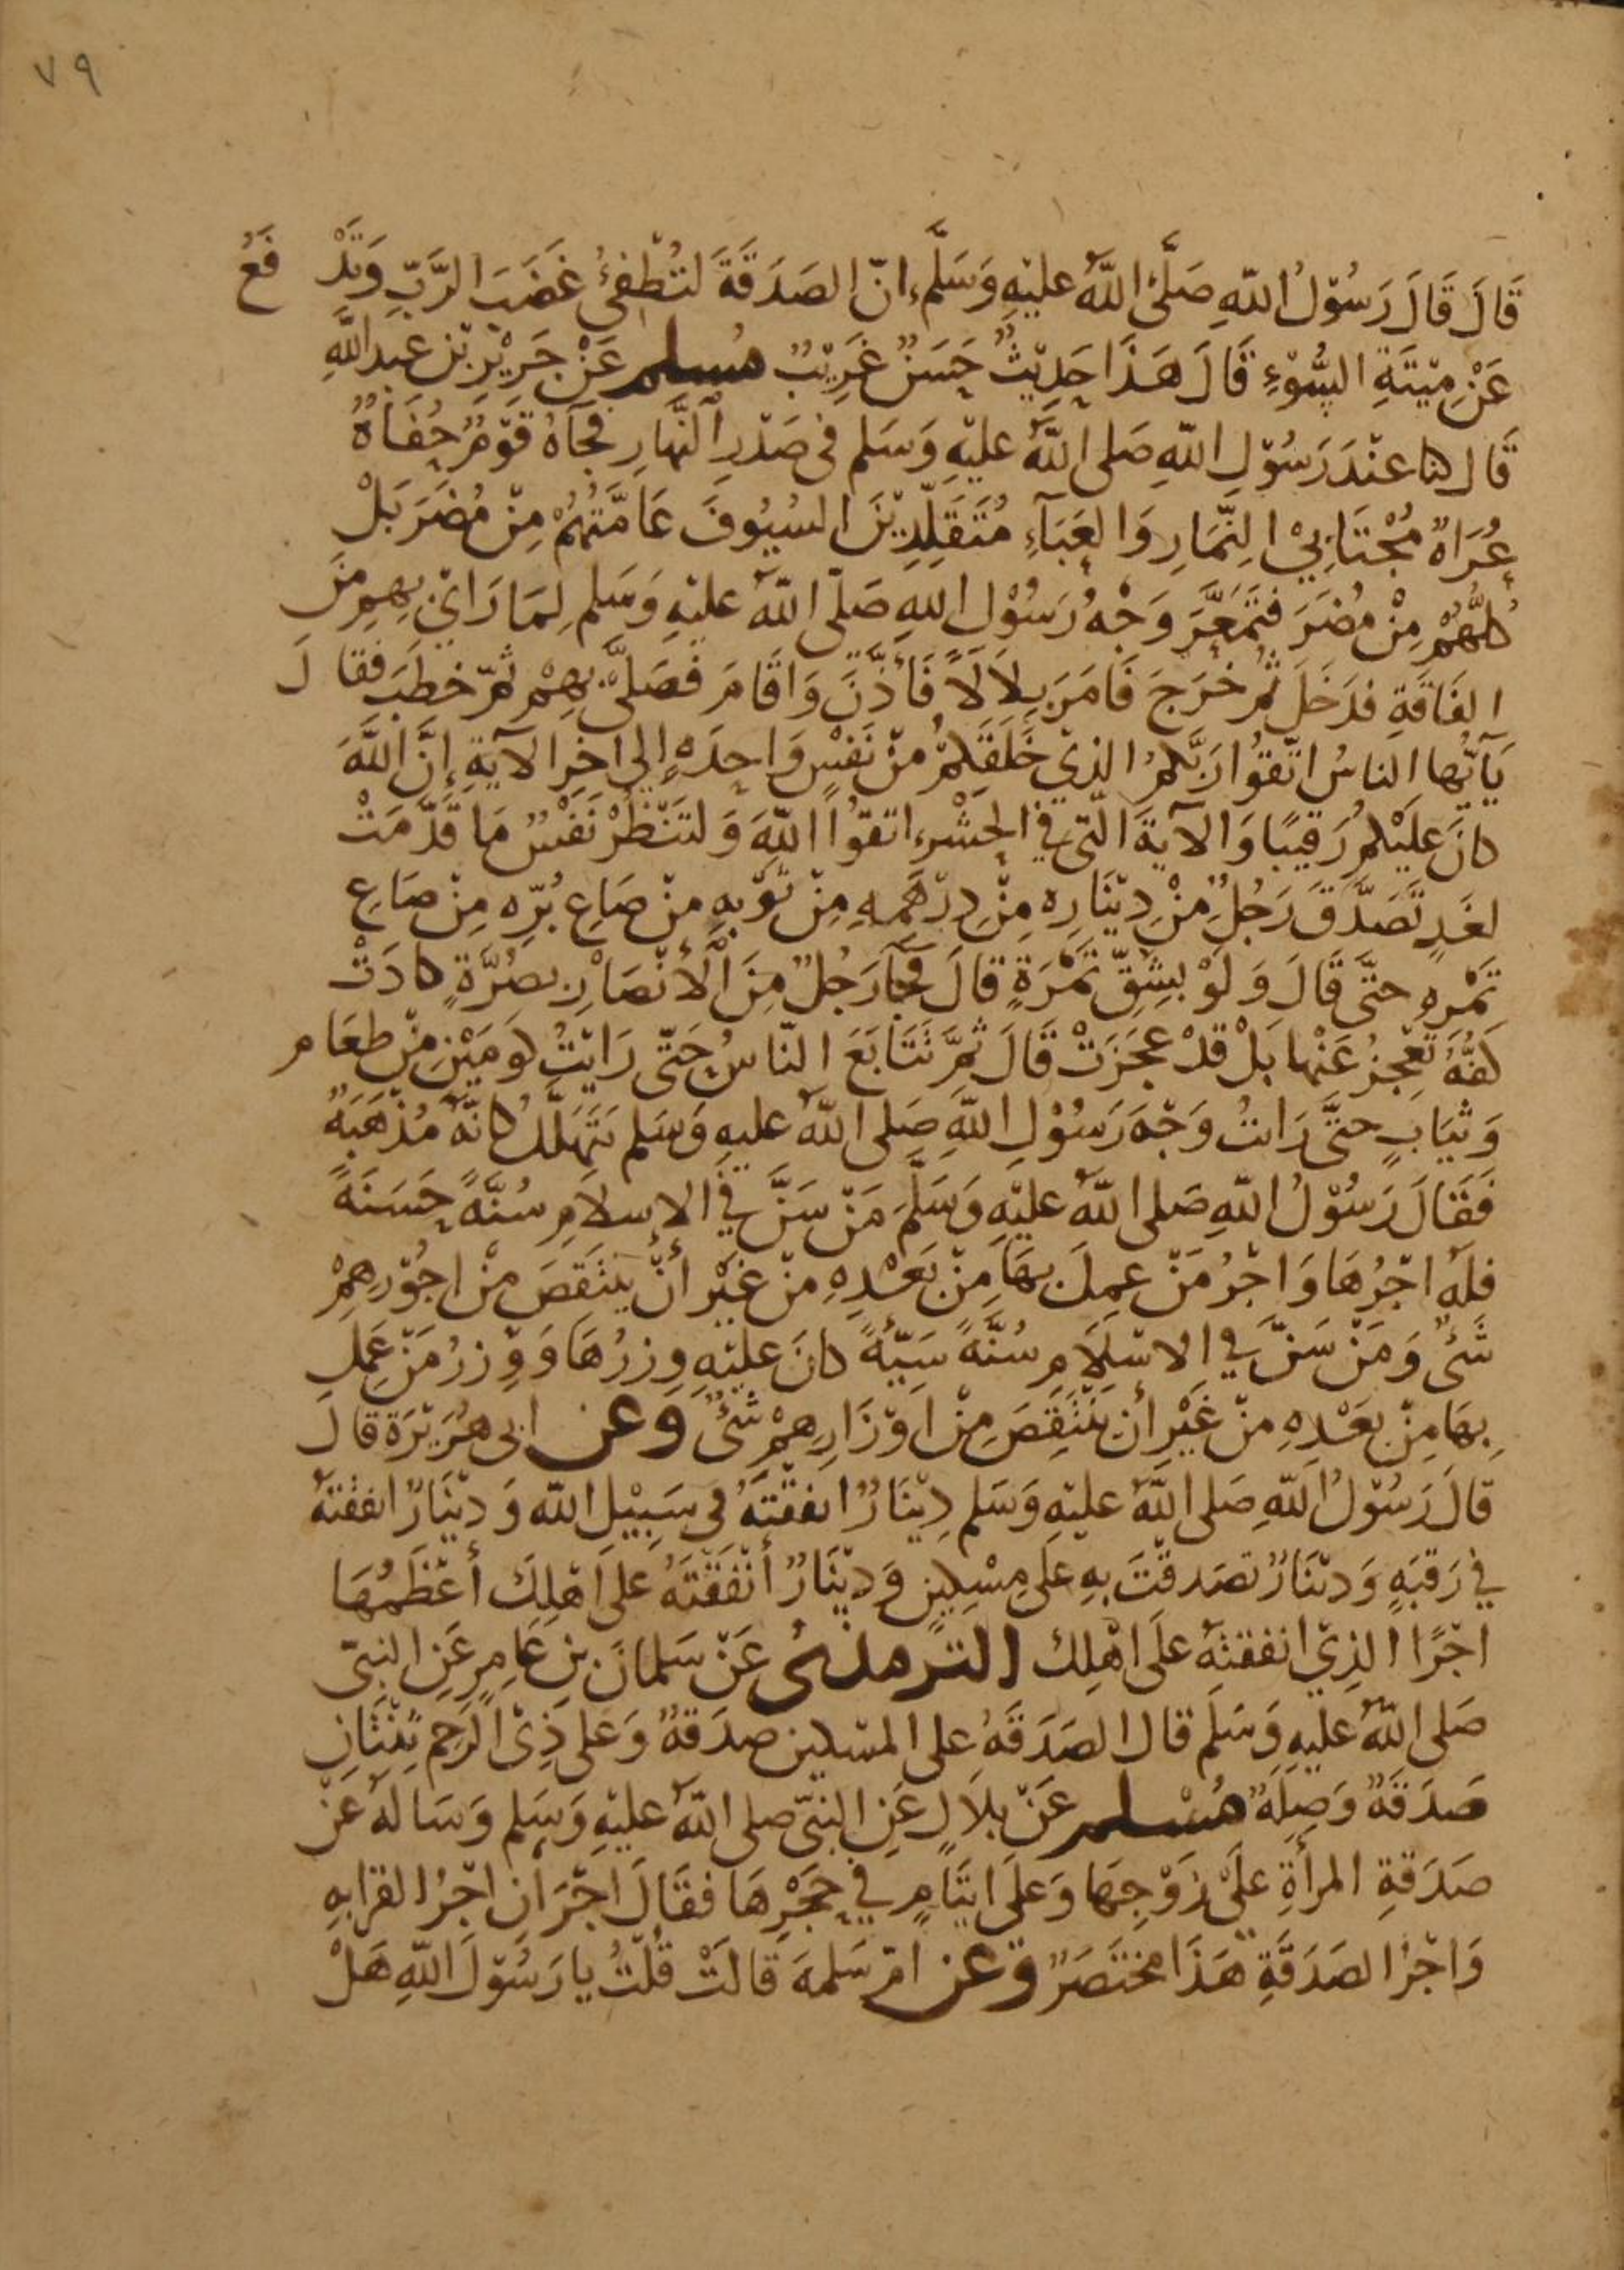 ٧٩
قَالَ قَالَ رَسُوْلُ اللّهِ صَلَّى اللَّهُ عليْهِ وَسَلَّم اِنّ الصَدَقَةَ لتُطْفِئُ غَضَبَ الرَّبِّ وَتَدْفَعُ
عَنْ مِيْتَةِ السُّوْءِ قَالَ هَذَا حَدِيْثٌ حَسَنٌ غَرِيْبٌ مُسلم عَنْ جَرِيْرِ بْنِ عبدِ اللَّهِ
قَال كنا عنْدَ رَسُوْلِ اللّهِ صَلى اللَّهُ عليْهِ وَسَلم فى صَدْرِ النَّهَارِ فجآهُ قوْمٌ حُفَاةٌ
عُرَاةٌ مُجْتَابِيْ النِّمَارِ وَالعَبَآءِ مُتَقَلِّدِيْنَ السُيُوفَ عَامَّتُهُمْ مِنْ مُضَرَ بَلْ
كلُّهُمْ مِنْ مُضَرَ فتَمَعَّرَ وَجْهُ رَسُوْلِ اللهِ صَلّى اللّهُ عليْهِ وَسَلم لِمَا رَاىْ بِهِم مِنَ
الفَاقَةِ فدَخَلَ ثُمّ خرَجَ فَامَرَ بِلاَلاً فَأَذَّنَ وَاقَامَ فَصَلىَّ بِهِمْ ثمّ خطَبَ فقَالَ
يَآيّها الناسُ اتّقوُا رَبَّكمُ الذِي خَلَقَكمْ مِنْ نَفْسٍ وَاحِدَةٍ اِلي اخِرِ الآيَةِ إِنَّ اللَّهَ
كانَ علَيْكمْ رَقيبًا وَالآيَةَ الّتى فِي الحَشْرِ اتقوُا اللّهَ وَلتَنْظُرْ نَفْسٌ مَا قَدَّمَتْ
لغَدٍ تَصَدَّقَ رَجُلٌ مِنْ دِيْنَارِه مِنْ دِرْهَمِهِ مِنْ ثَوْبِهِ مِنْ صَاعِ بُرّهِ مِنْ صَاعِ
تَمْرِهِ حتَّى قَالَ وَلَوْ بِشِقِّ تَمْرَةٍ قالَ فجآ رَجُلٌ مِنَ الْأَنْصَارِ بصُرَّةٍ كادَتْ
كَفُّهُ تَعْجِزُ عَنْها بَلْ قدْ عجَزَتْ قَالَ ثمَّ تَتَابَعَ النّاسُ حَتّى رَايْتُ كَومَيْنِ مِنْ طعَامٍ
وَثيَابٍ حتَّى رَاتُ وَجْهَ رَسُوْلِ اللّهِ صَلى اللّهُ عليهِ وَسَلم يَتهَلَّلُ كانّهُ مُذْهَبَةٌ
فَقَالَ رَسُوْلُ اللّهِ صَلى اللّهُ عليْهِ وَسَلَّمَ مَنْ سَنَّ فِي الاِسلاَمِ سُنَّةً حَسَنَةً
فلَهُ اجْرُهَا وَاجْرُ مَنْ عمِلَ بِهَا مِنْ بَعْدِهِ مِنْ غَيْرِ أنْ يَنْقِصَ مِنْ اجُوْرِهِمْ
شَىٌ وَمَنْ سَنَّ فِي الاِسْلاَمِ سُنَّةً سَيّةً كانَ عليْهِ وِزرُهَا وَوِزرُ مَنْ عَمِلَ
بِهَا مِنْ بعَدِهِ مِنْ غَيْرِ أن يَنْقِصَ مِنْ اَوْزَارِهِمْ شَىٌ وعن ابى هُرَيْرَة قالَ
قالَ رَسُوْلُ اللّهِ صَلى اللَّهُ عليْهِ وَسَلم دِيْنَارٌ انفقْتَهُ فى سَبِيْلِ اللّه وَدِيْنَارٌ انفقْتهُ
فِي رَقبَةٍ وَدِيْنَارٌ تصَدقْتَ بِهِ عَلَى مِسْكِينٍ وَدِيْنَارٌ أنْفَقْتَهُ عَلى اَهْلِكَ أعْظَمُهَا
اجْرًا الذِيْ انفقتهُ علَى اهْلِك الترمذىُّ عَنْ سَلمانَ بنِ عَامِرٍ عَنِ النبِىّ
صَلى اللّهُ عليْهِ وَسَلم قال الصَدَقَهُ على المسْكين صدَقةٌ وَعلى ذِى الرَحِم ثِنْتَانِ
صَدَقَةٌ وَصِلَةٌ مُسْلم عَنْ بلاَلٍ عَنِ النبىّ صلى اللّهُ عليْهِ وَسَلم وَسَالهُ عَنْ
صَدَقةِ المرأةِ علَى زَوْجِهَا وَعلَى ايتَامٍ فِي حَجْرِهَا فقَالَ اجْرَانِ اجْرُ القرابهِ
وَاجْرُ الصَدَقَةِ هَذَا مختَصَرٌ وعن امّ سَلمهَ قالَتْ قُلتُ يا رَسُوْلَ اللّهِ هَلْ